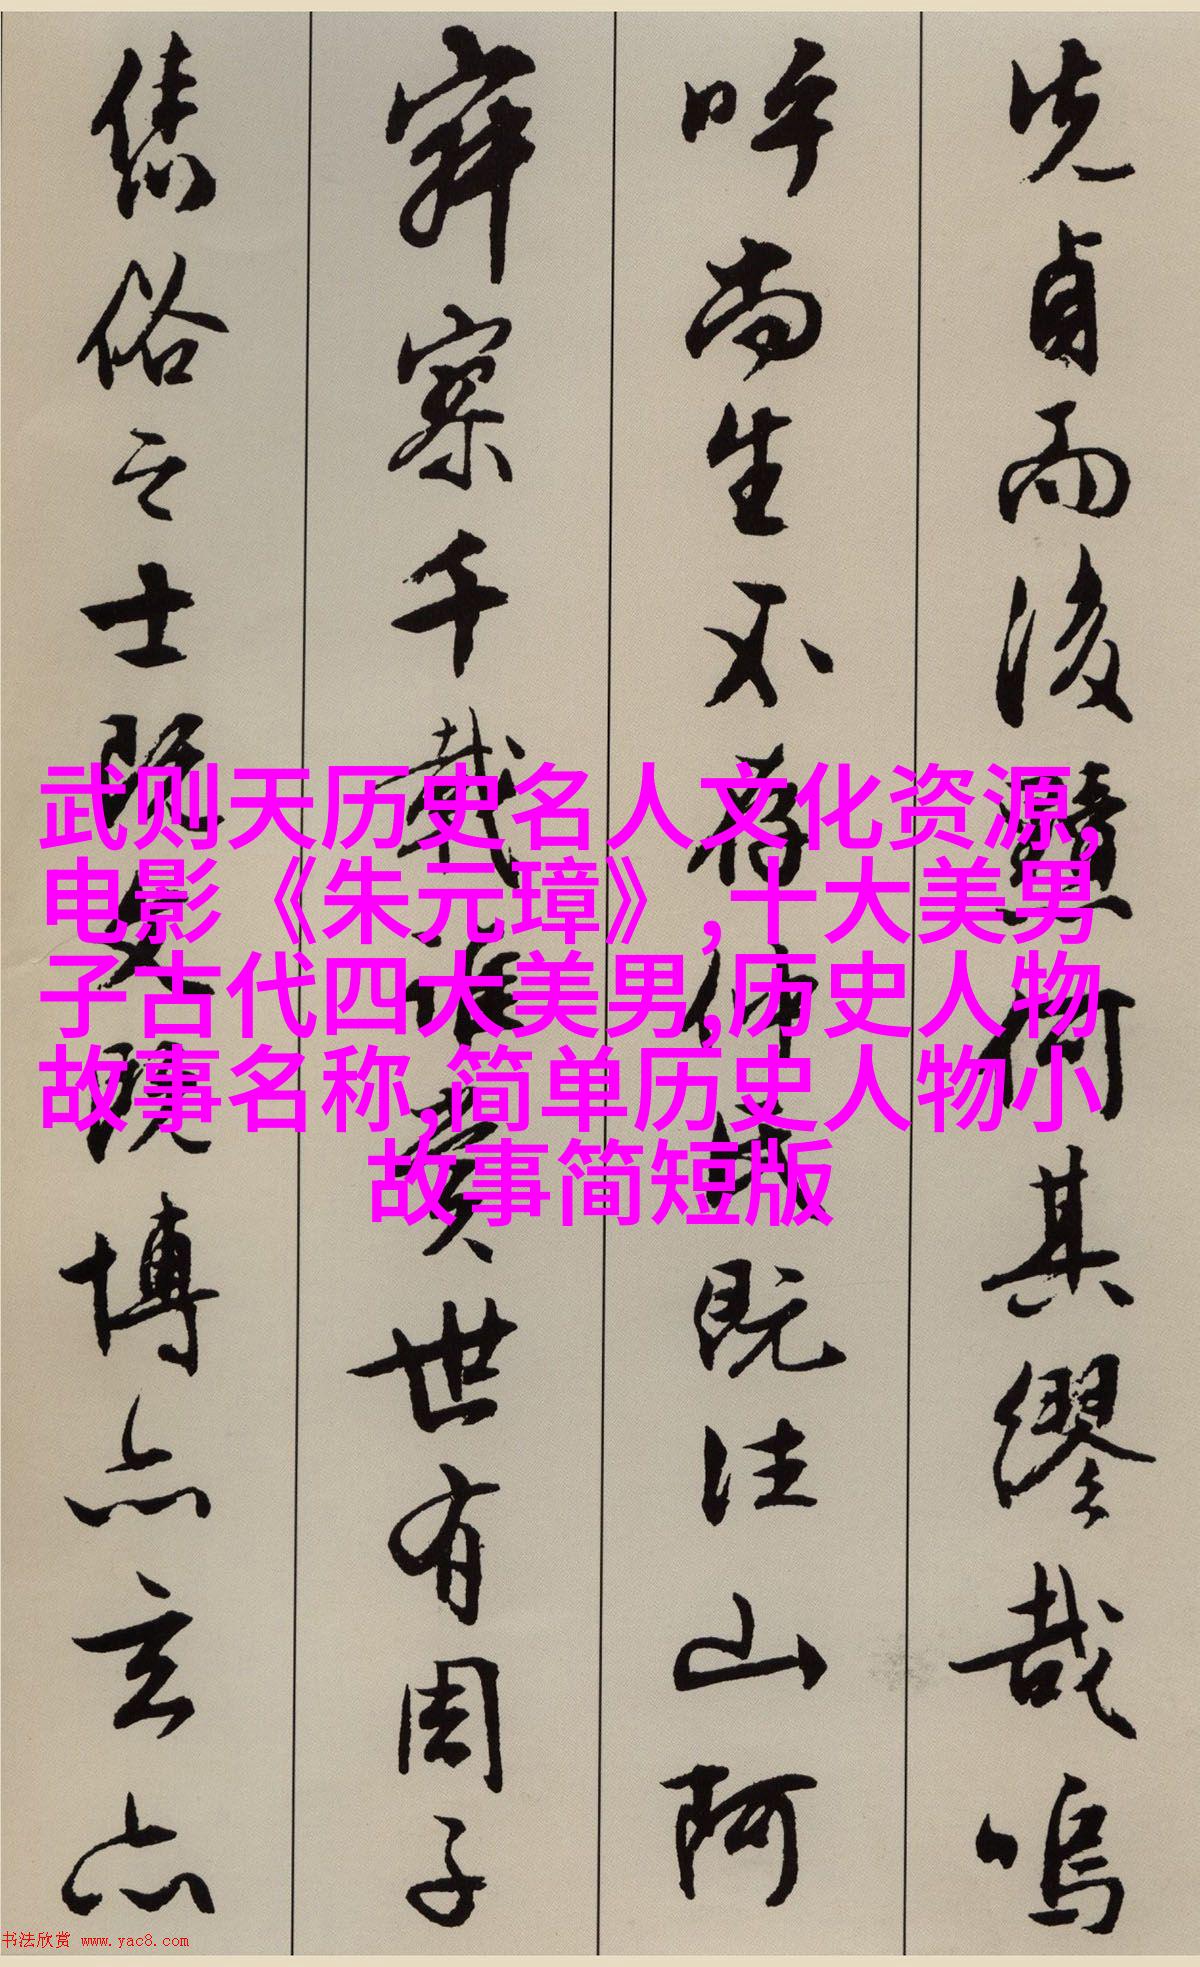 先貞而後黷何其繆哉嗚
呼尚生不存仲氏既往山阿
寂寥千載誰賞世有周子
雋俗之士既文既博亦玄亦
武则天历史名人文化资源,
电影《朱元璋》,十大美男
子古代四大美男,历史人物
故事名称,简单历史人物小
故事简短版
书法欣赏 www.yac8.com